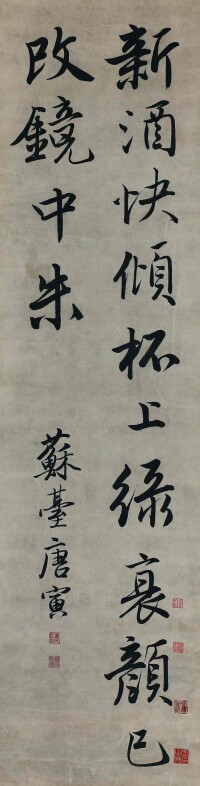 新酒快傾杯上綠衰顏已
改鏡中朱
蘇臺唐寅